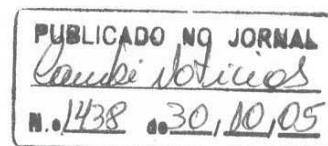 PUBLICADO NO JORNAL
Cambé Notícias
N.º 1438 de 30,10,05